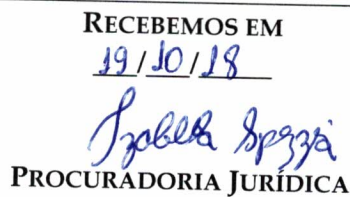 RECEBEMOS EM
19/10/18
Izabella Spezzia
PROCURADORIA JURÍDICA